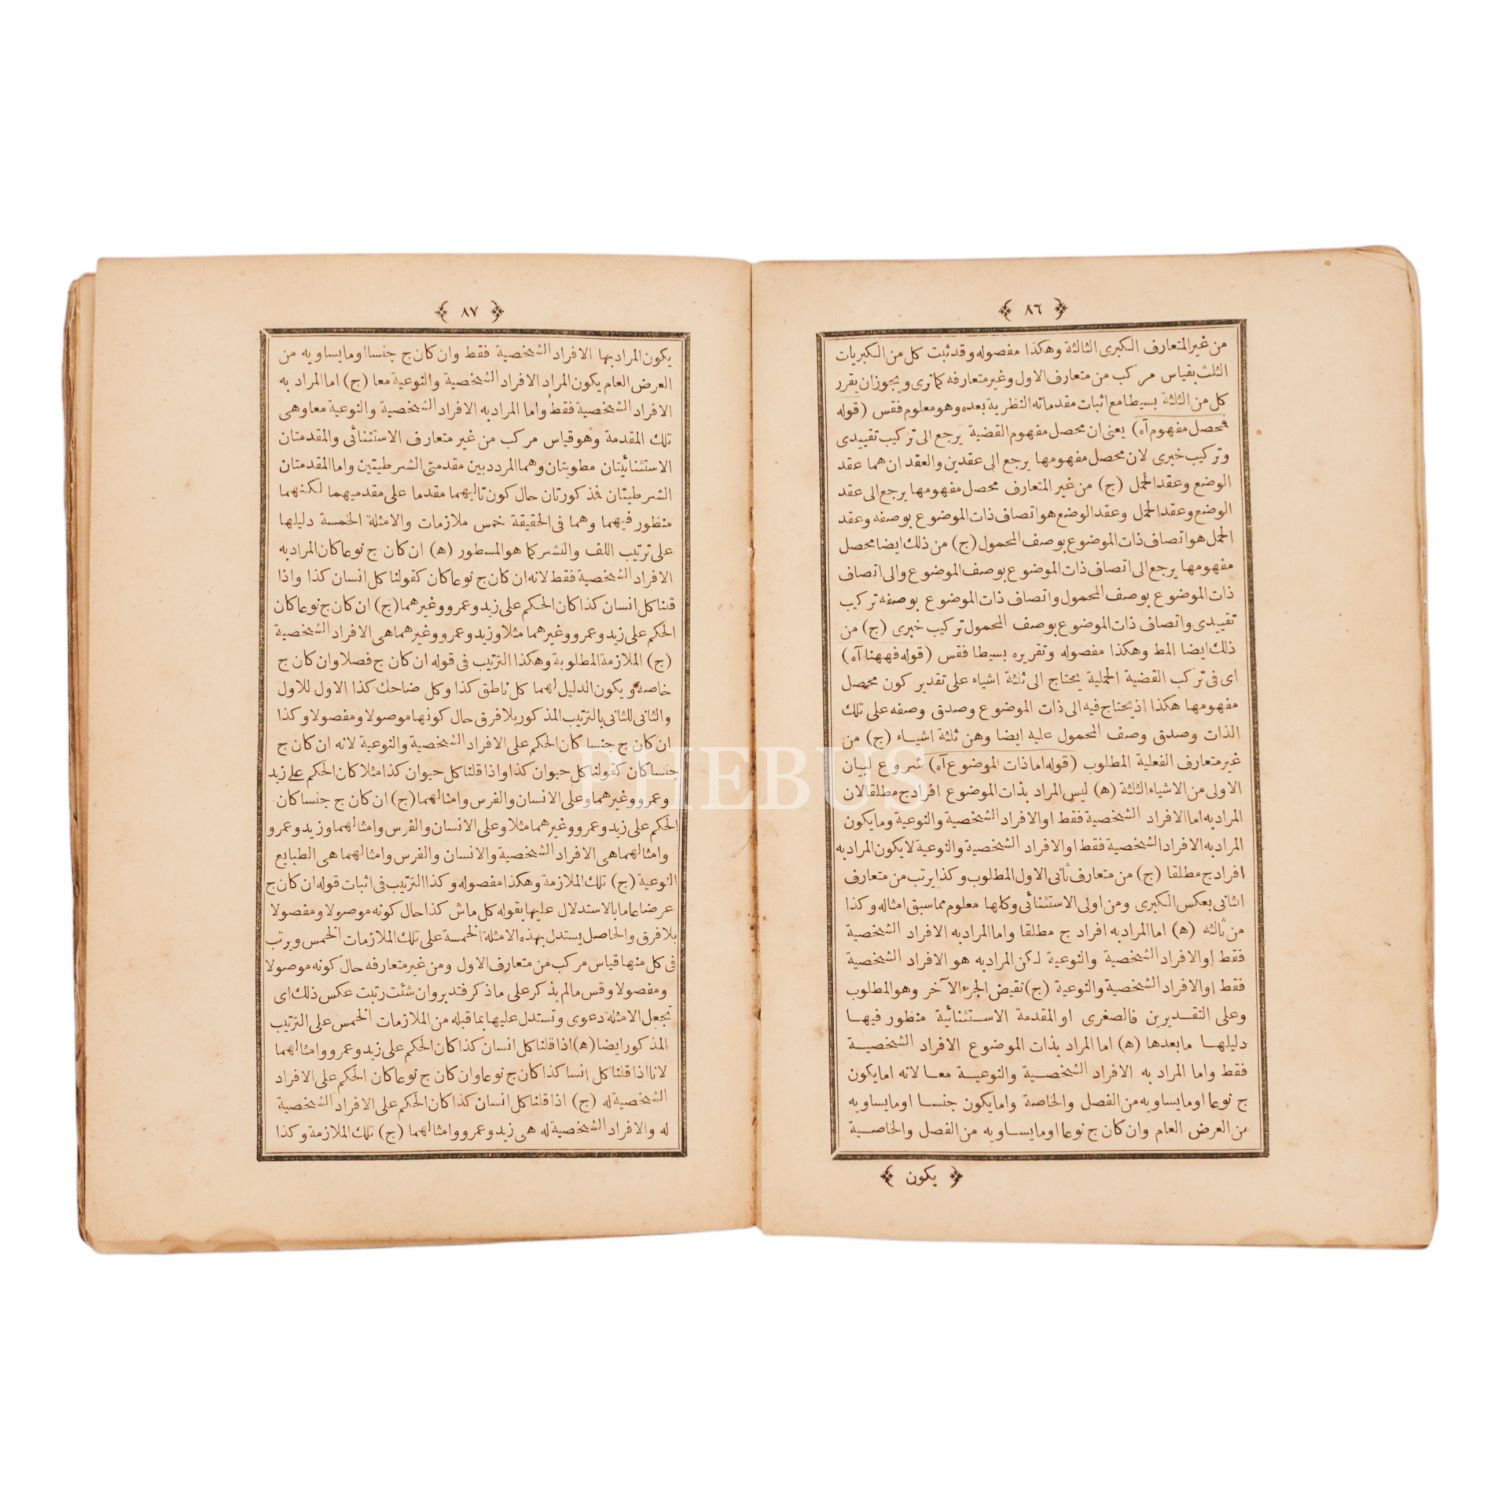 ٨٦
من غير المتعارف الكبرى الثالثة وهكذا مفصوله وقد ثبت كل من الكبريات
الثلث بقياس مركب من متعارف الاول وغير متعارفه كماترى ويجوز ان يقرر
كل من الثلثة بسيطا مع اثبات مقدماته النظرية بعده وهو معلوم فقس (قوله
محصل مفهوم آه) يعنى ان محصل مفهوم القضية يرجع الى تركيب تقييدى
وتركيب خبرى لان محصل مفهومها يرجع الى عقدين والعقد ان هما عقد
الوضع وعقد الحمل (ج) من غير المتعارف محصل مفهومها يرجع الى عقد
الوضع وعقد الحمل وعقد الوضع هو اتصاف ذات الموضوع بوصفه وعقد
الحمل هو اتصاف ذات الموضوع بوصف المحمول (ج) من ذلك ايضا محصل
مفهومها يرجع الى اتصاف ذات الموضوع بوصف الموضوع والى اتصاف
ذات الموضوع بوصف المحمول واتصاف ذات الموضوع بوصفه تركيب
تقييدى واتصاف ذات الموضوع بوصف المحمول تركيب خبرى (ج) من
ذلك ايضا المط وهكذا مفصوله وتقريره بسيطا فقس (قوله فههنا آه)
اى فى تركب القضية الحملية يحتاج الى ثلثة اشياء على تقدير كون محصل
مفهومها هكذا اذ يحتاج فيه الى ذات الموضوع وصدق وصفه على تلك
الذات وصدق وصف المحمول عليه ايضا وهن ثلثة اشياء (ج) من
غير متعارف الفعلية المطلوب (قوله اما ذات الموضوع آه) شروع لبيان
الاولى من الاشياء الثلثة (ه) ليس المراد بذات الموضوع افراد ج مطلقا لان
المراد به اما الافراد الشخصية فقط او الافراد الشخصية والنوعية وما يكون
المراد به الافراد الشخصية فقط او الافراد الشخصية والنوعية لايكون المراد به
افراد ج مطلقا (ج) من متعارف ثانى الاول المطلوب وكذا يرتب من متعارف
الثانى بعكس الكبرى ومن اولى الاستثنائى وكلها معلوم مما سبق امثاله وكذا
من ثالثه (ه) اما المراد به افراد ج مطلقا واما المراد به الافراد الشخصية
فقط او الافراد الشخصية والنوعية لكن المراد به هو الافراد الشخصية
فقط او الافراد الشخصية والنوعية (ج) نقيض الجزء الآخر وهو المطلوب
وعلى التقديرين فالصغرى او المقدمة الاستثنائية منظور فيها
دليلها ما بعدها (ه) اما المراد بذات الموضوع الافراد الشخصية
فقط واما المراد به الافراد الشخصية والنوعية معا لانه اما يكون
ج نوعا او ما يساويه من الفصل والخاصة واما يكون جنسا او ما يساويه
من العرض العام وان كان ج نوعا او ما يساويه من الفصل والخاصية
يكون
٨٧
يكون المراد بها الافراد الشخصية فقط وان كان ج جنسا او ما يساويه من
العرض العام يكون المراد الافراد الشخصية والنوعية معا (ج) اما المراد به
الافراد الشخصية فقط واما المراد به الافراد الشخصية والنوعية معا وهى
تلك المقدمة وهو قياس مركب من غير متعارف الاستثنائى والمقدمتان
الاستثنائيتان مطويتان وهما المرددبين مقدمتى الشرطيتين واما المقدمتان
الشرطيتان فذكورتان حال كون تاليهما مقدما على مقدميهما لكنهما
منظور فيهما وهما فى الحقيقة خمس ملازمات والامثلة الخمسة دليلها
على ترتيب اللف والنشر كما هو المسطور (ه) ان كان ج نوعا كان المراد به
الافراد الشخصية فقط لانه ان كان ج نوعا كان كقولنا كل انسان كذا واذا
قلنا كل انسان كذا كان الحكم على زيد وعمرو وغيرهما (ج) ان كان ج نوعا كان
الحكم على زيد وعمرو وغيرهما مثلا وزيد وعمرو وغيرهما هى الافراد الشخصية
(ج) الملازمة المطلوبة وهكذا الترتيب فى قوله ان كان ج فصلا وان كان ج
خاصة ويكون الدليل لهما كل ناطق كذا وكل ضاحك كذا الاول للاول
والثانى للثانى بالترتيب المذكور بلا فرق حال كونها موصولا ومفصولا وكذا
ان كان ج جنسا كان الحكم على الافراد الشخصية والنوعية لانه ان كان ج
جنسا كان كقولنا كل حيوان كذا واذا قلنا كل حيوان كذا مثلا كان الحكم على زيد
وعمرو وغيرهما وعلى الانسان والفرس وامثالهما (ج) ان كان ج جنسا كان
الحكم على زيد وعمرو وغيرهما مثلا وعلى الانسان والفرس وامثالهما وزيد وعمرو
وامثالهما هى الافراد الشخصية والانسان والفرس وامثالهما هى الطبايع
النوعية (ج) تلك الملازمة وهكذا مفصوله وكذا الترتيب فى اثبات قوله ان كان ج
عرضا عاما بالاستدلال عليها بقوله كل ماش كذا حال كونه موصولا ومفصولا
بلا فرق والحاصل يستدل بهذه الامثلة الخمسة على تلك الملازمات الخمس ويرتب
فى كل منها قياس مركب من متعارف الاول ومن غير متعارفه حال كونه موصولا
ومفصولا وقس مالم يذكر على ما ذكر فتدبر وان شئت رتبت عكس ذلك اى
تجعل الامثلة دعوى وتستدل عليها بما قبله من الملازمات الخمس على الترتيب
المذكور ايضا (ه) اذا قلنا كل انسان كذا كان الحكم على زيد وعمرو وامثالهما
لانا اذا قلنا كل انسا كذا كان ج نوعا وان كان ج نوعا كان الحكم على الافراد
الشخصية له (ج) اذا قلنا كل انسان كذا كان الحكم على الافراد الشخصية
له والافراد الشخصية له هى زيد وعمرو وامثالهما (ج) تلك الملازمة وكذا
PHEBUS